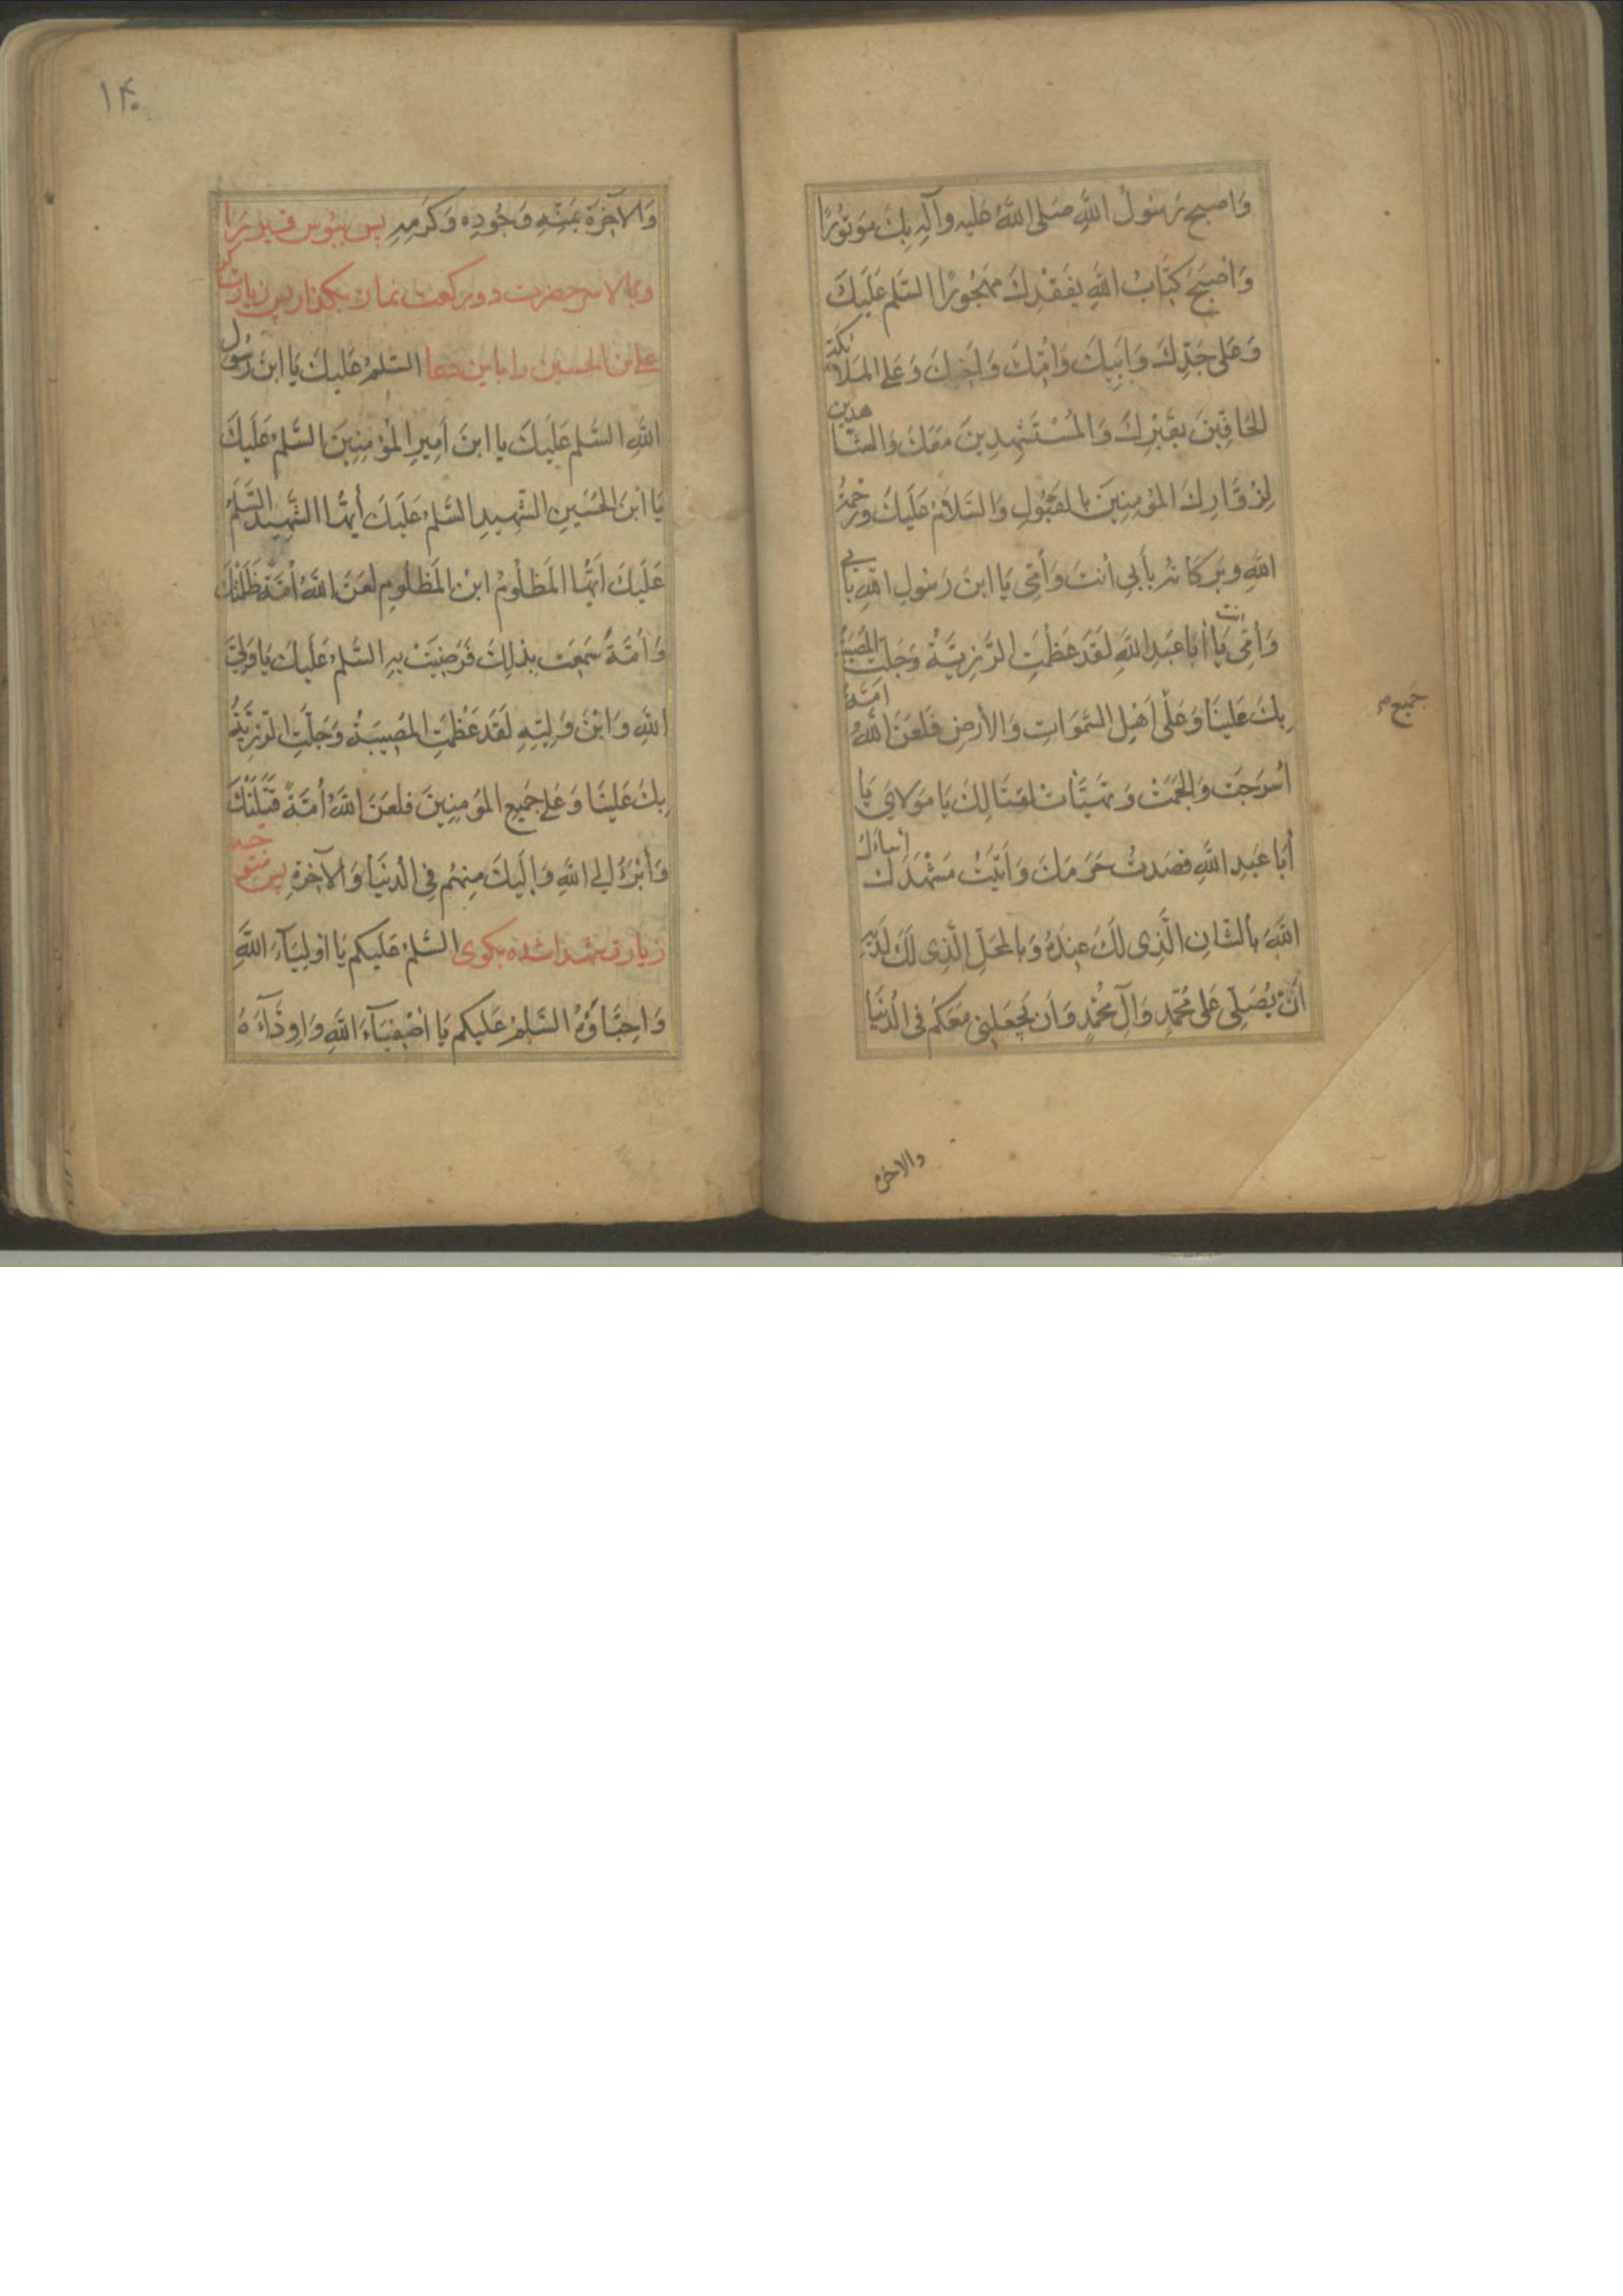 وَاصبح رَسُولُ اللَّهِ صَلی اللَّهُ عَلیه وآلِهِ بِكَ مَوتُورًا
وَاَصْبَحَ كِتَابُ اللَّهِ بِفَقْدِكَ مَهْجُورًا السَّلمُ عَلَيْكَ
وَعَلى جَدِّكَ وَاَبِيكَ وَاُمِّكَ وَاَخِيكَ وَعَلَى المَلَائكَةِ
الحَافِّينَ بِقَبْرِكَ وَالمُسْتَشْهِدِينَ مَعَكَ وَالشَّاهدين
لِزُوَّارِكَ المُؤمِنِينَ بِالقَبُولِ وَالسَّلَامُ عَلَيْكَ وَرَحْمَةُ
اللَّهِ وبَرَكَاتُهُ بِأَبِي اَنْتَ وَأُمِّي يَا ابنَ رَسُولِ اللَّهِ بِاَبِي
انت وَأُمِّي يَا أَبَا عَبدِ اللَّهِ لَقَد عَظُمَتِ الرَّزِيَّةُ وَجَلَّتِ المُصِيبَةُ
بِكَ عَلَينَا وَعَلَى اَهْلِ السَّمَوَاتِ وَالأَرضِ فَلَعَنَ اللَّهُ اُمَّةً
جَميع م
اَسْرَجَت وَاَلْجَمَتْ وَتَهَيَّأَت لِقِتَالِكَ يَا مَولَايَ يَا
أَبَا عَبدِ اللَّهِ قَصَدتُ حَرَمَكَ وَأَتَيْتُ مَشْهَدَكَ أسأَلُ
اللَّهَ بِالشَّانِ الَّذِی لَكَ عِندَهُ وَبِالمَحَلِّ الَّذِی لَكَ لَدَيْهِ
اَنْ يُصَلِّیَ عَلى مُحَمَّدٍ وَآلِ مُحَمَّدٍ وَاَن يَجعَلَنِي مَعَكُم فِی الدُّنيَا
والاخرة
۱۴۰
وَالآخِرَةِ بِمَنِّهِ وَجُودِه وَكَرَمِهِ پس ببوس قبر را
وببالا سر حضرت دو ركعت نماز بكذار پس زيارت كن
علی بن الحسين را باين دعا السَّلمُ عَلَيكَ يَا ابنَ رَسُول
اللَّهِ السَّلمُ عَلَيكَ يا ابنَ اَمِيرِ المُؤمِنِينَ السَّلمُ عَلَيكَ
يَا ابنَ الحُسَينِ الشَّهِيدِ السَّلمُ عَلَيكَ أَيُّهَا الشَّهِيدُ السَّلمُ
عَلَيكَ اَيُّهَا المَظلُومُ ابنَ المَظلُومِ لَعَنَ اللَّهُ اُمَّةً ظَلَمَتْكَ
وَاُمَّةً سَمِعَت بِذَلِكَ فَرَضِيَتْ بِهِ السَّلمُ عَلَيكَ يَا وَلِيَّ
اللهِ وَابْنَ وَلِيِّهِ لَقَد عَظُمَتِ المُصِيبَةُ وَجَلَّتِ الرَّزِيَّةُ
بِكَ عَلَينَا وَعَلى جَمِيعِ المُؤمِنِينَ فَلَعَنَ اللَّهُ اُمَّةً قَتَلَتْكَ
وَأَبْرَأُ اِلَى اللَّهِ وَاِلَيكَ مِنهُم فِی الدُّنيَا وَالآخِرَةِ پس متوجه
زيارت شهدا شده بكوی السَّلمُ عَلَيكُم يَا اَولِيَآءَ اللَّهِ
وَاَحِبَّاؤُهُ السَّلمُ عَلَيكُم يَا اَصْفِيَآءَ اللَّهِ وَاَوِدَّآءَهُ